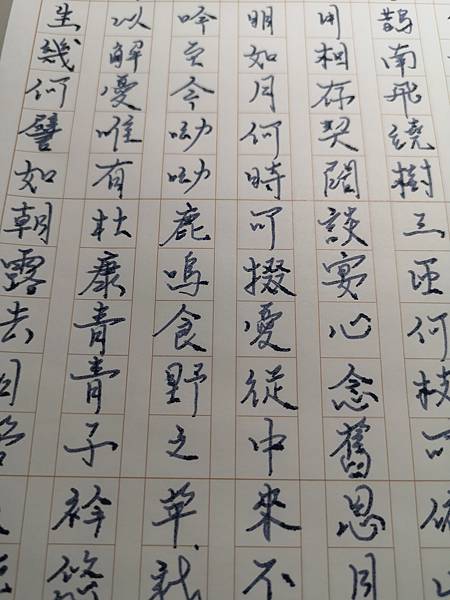 生幾何譬如朝露去日苦
以解憂唯有杜康青青子衿悠
吟至今呦呦鹿鳴食野之苹我
明如月何時可掇憂從中來不
用相存契闊談宴心念舊恩月
鵲南飛繞樹三匝何枝可依山